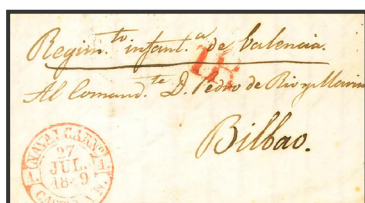 Regim.to infant.a de Valencia.
Al Comand.te D. Pedro de Rivy Marin
Bilbao.
27
JUL.
1849